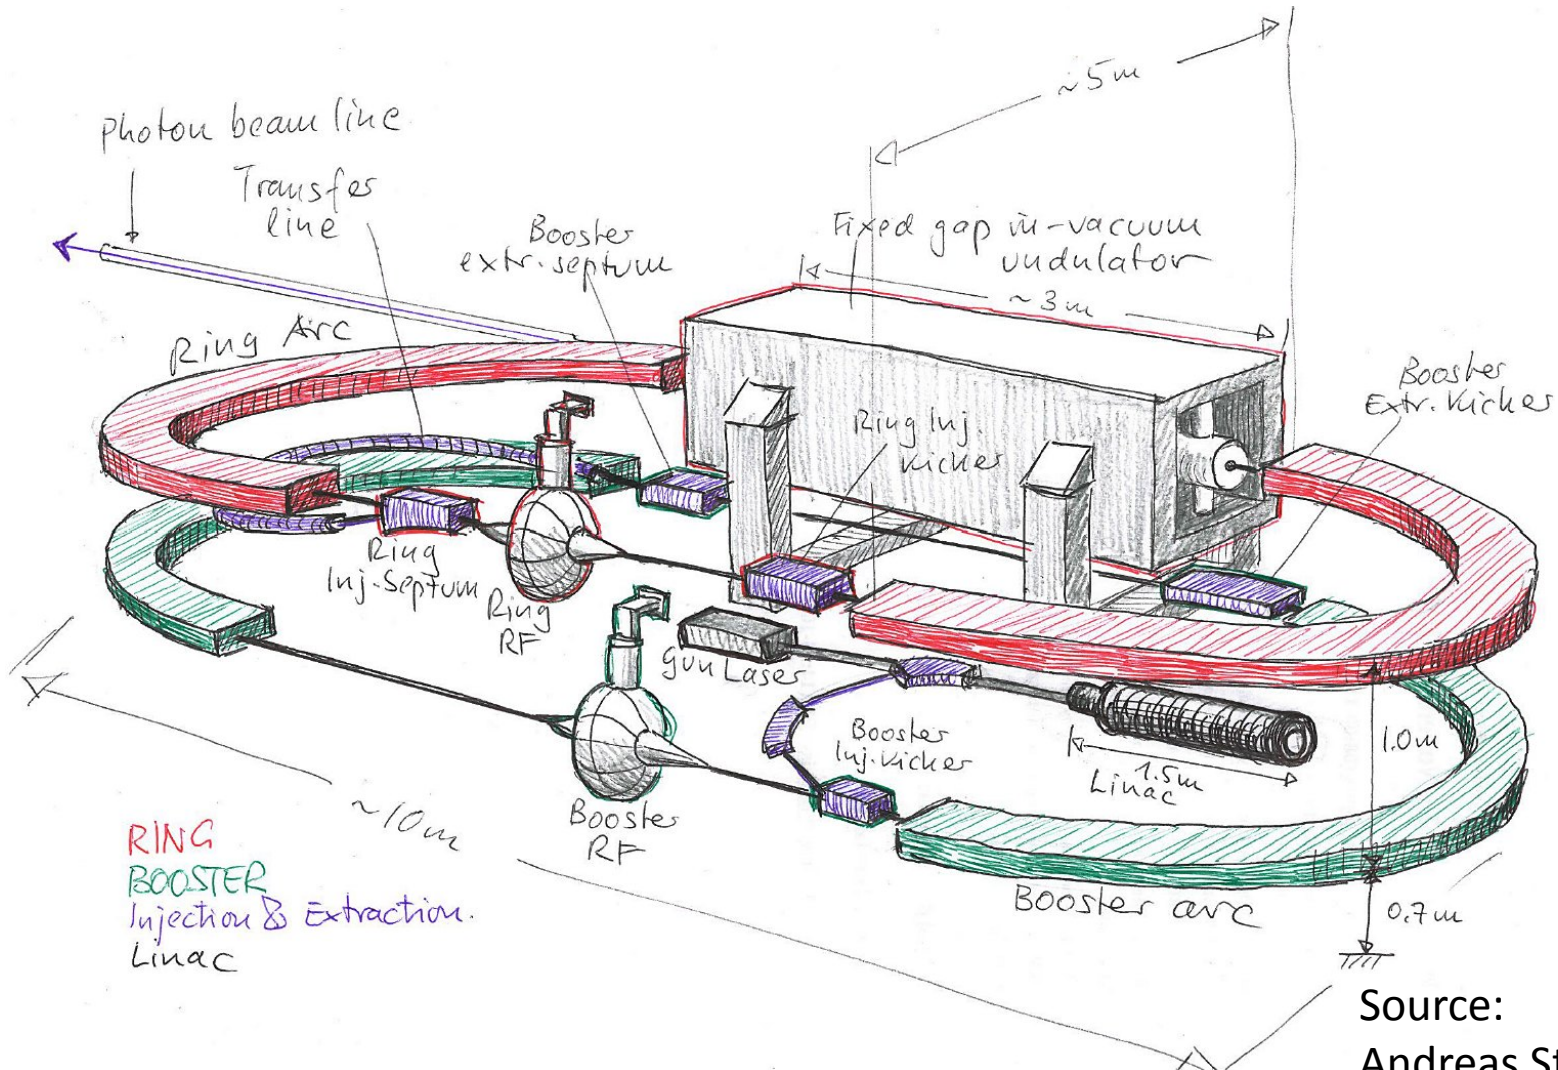 ~5m
Photon beam line
Transfer
line
Booster
extr. septum
Fixed gap in-vacuum
undulator
~3m
Ring Arc
Booster
Extr. Kicker
Ring Inj.
Kicker
Ring
Inj. Septum
Ring
RF
Gun Laser
Booster
Inj. Kicker
1.5m
Linac
1.0m
~10m
Booster
RF
RING
BOOSTER
Injection & Extraction.
Linac
Booster arc
0.7m
Source:
Andreas St